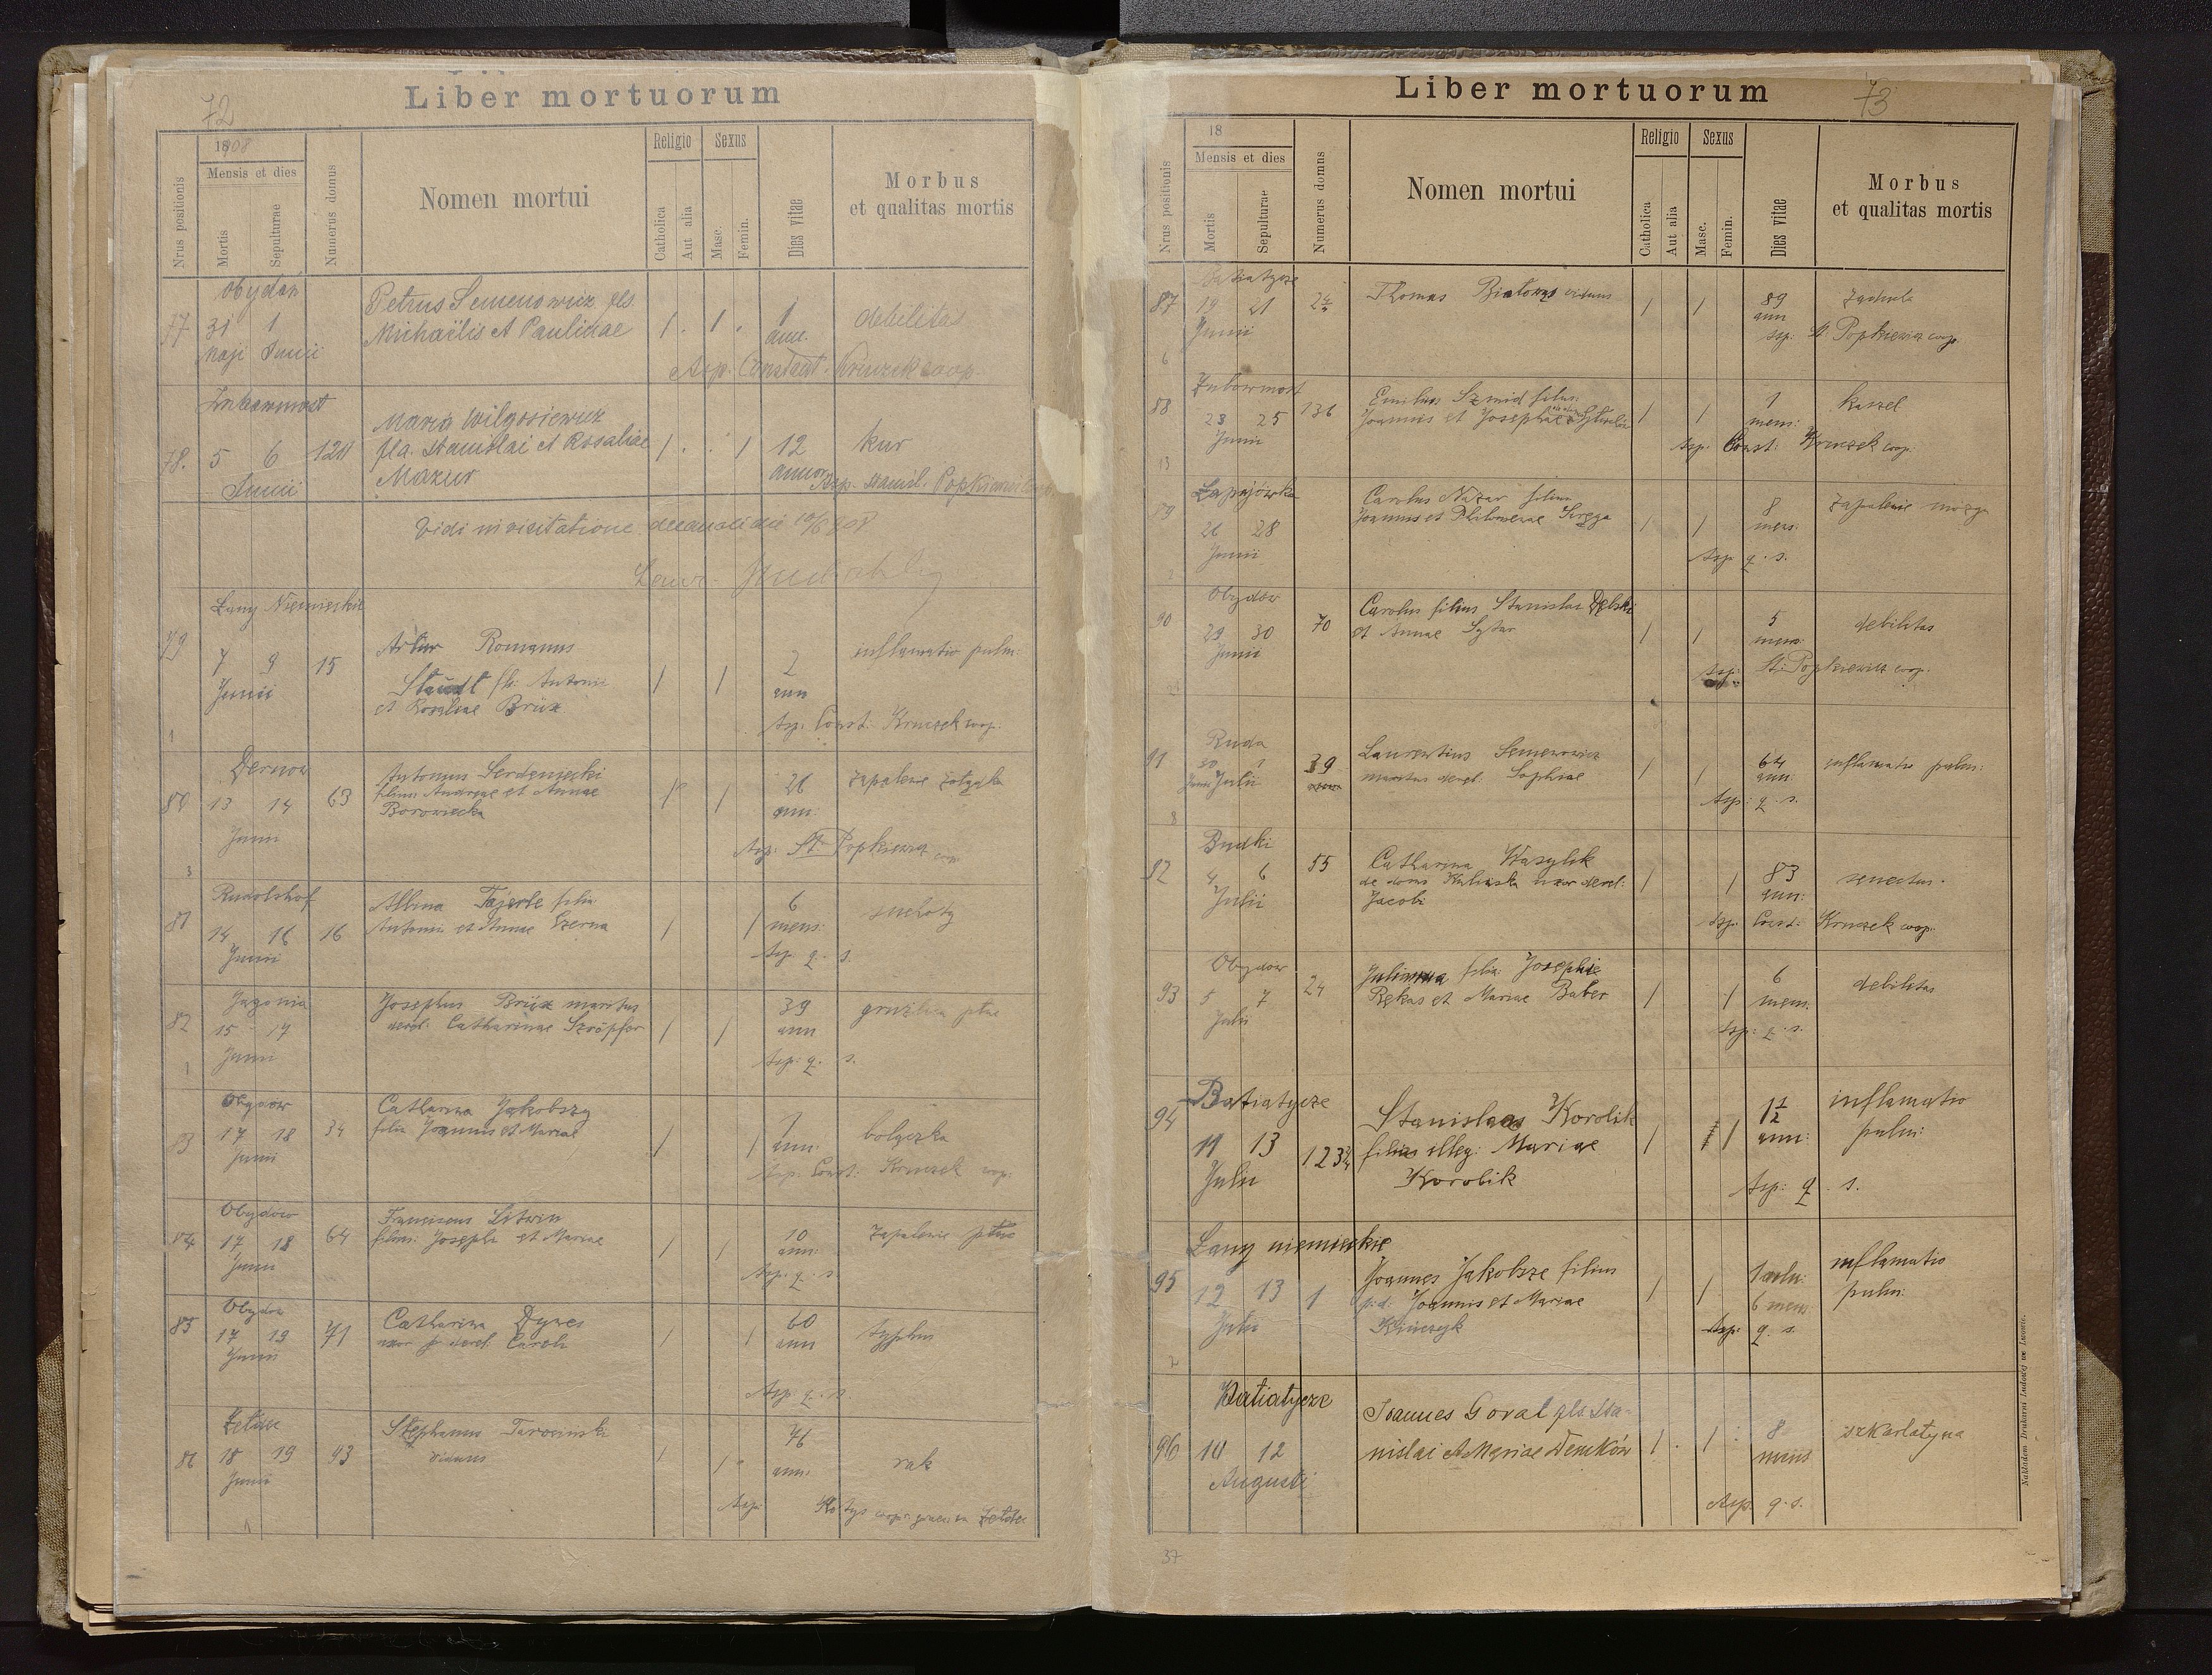 72
Liber mortuorum
Nrus positionis
1908
Mensis et dies
Mortis
Sepulturae
Numerus domus
Nomen mortui
Religio
Catholica
Aut alia
Sexus
Masc.
Femin.
Dies vitae
Morbus
et qualitas mortis
Obydów
77 31 1
Maji Junii
Petrus Semenowicz fls.
Michaëlis et Paulinae
1
ann.
debilitas
Asp. Constant. Kruczek coop.
Żubowmost
78. 5 6 124
Junii
Maria Wilgosiewicz
fla. Stanislai et Rosaliae
Mazur
12
annor.
kur
Asp. Stanisl. Popkiewicz coop.
Vidi in visitatione decanali die 10/6 908
Łany Niemieckie
79 7 9 15
Junii
Artur Romanus
Staudt fil. Antonii
et Rosaliae Brüx
2
ann
inflamatio pulm:
Asp. Const. Kruczek coop.
Dernow
80 13 14 63
Junii
Antonius Serdeniecki
filius Andreae et Annae
Borowiecka
26
ann:
zapalenie żołądka
Asp: St. Popkiewicz coop
Rudolshof
81 14 16 16
Junii
Albina Tajerle filia
Antonii et Annae Czerna
6
mens:
suchoty
Asp. q. s.
Jagonia
82 15 17
Junii
Josephus Brüx maritus
derel. Catharinae Szröpfer
39
ann
gruźlica płuc
Asp: q. s.
Obydow
83 17 18 34
Junii
Catharina Jakobszy
filia Joannis et Mariae
7
ann:
bolączka
Asp: Const: Kruczek coop.
Obydów
84 17 18 64
Junii
Franciscus Litwin
filius: Josephi et Mariae
10
ann:
zapalenie płuc
Asp. q. s.
Obydów
85 17 19 71
Junii
Catharina Dywes
uxor p. derel. Caroli
60
ann
typhus
Asp. q. s.
Żełdec
86 18 19 93
Junii
Stephanus Tarocinski
viduus
76
ann:
rak
73
Liber mortuorum
Nrus positionis
18
Mensis et dies
Mortis
Sepulturae
Numerus domus
Nomen mortui
Religio
Catholica
Aut alia
Sexus
Masc.
Femin.
Dies vitae
Morbus
et qualitas mortis
Batiatycze
87 19 21
Junii
Thomas Białowąs viduus
89
ann
Asp: St: Popkiewicz coop.
Żubowmost
88 23 25 136
Junii
Emilius Szmid filius
Joannis et Josephae
1
mens:
kaszel
Asp. Const: Kruczek coop.
Łapajówka
89 26 28
Junii
Carolus Nazar filius
Joannis et Philomenae Kręga
8
mens:
zapalenie mózgu
Asp q. s.
Obydów
90 29 30 70
Junii
Carolus filius Stanislai Dębski
et Annae Sytar
5
mens:
debilitas
Asp: St: Popkiewicz coop.
Ruda
91 30 1 39
Junii Julii
Laurentius Semenowicz
maritus derel. Sophiae
64
ann:
inflamatio pulm:
Asp: q. s.
Budki
92 4 6 55
Julii
Catharina Wasylik
de domo Kulinska uxor derel:
Jacobi
83
ann:
senectus.
Asp: Const: Kruczek coop.
Obydów
93 5 7 24
Julii
Julianna filia Josephi
Rękas et Mariae Baber
6
mens.
debilitas
Asp: q. s.
Batiatycze
94 11 13 123
Julii
Stanislaa Korolik
filia illeg: Mariae
Korolik
1 1/2
ann:
inflamatio
pulm:
Asp: q. s.
Łany niemieckie
95 12 13 1
Julii
Joannes Jakobsze filius
p.d. Joannis et Mariae
Kińczyk
1 ann:
6 mens
inflamatio
pulm:
Asp: q. s.
Batiatycze
96 10 12
Augusti
Joannes Goral fls Sta-
nislai et Mariae Demków
8
mens
szkarlatyna
Asp. q. s.
37
Nakładem Drukarni Ludowej we Lwowie.